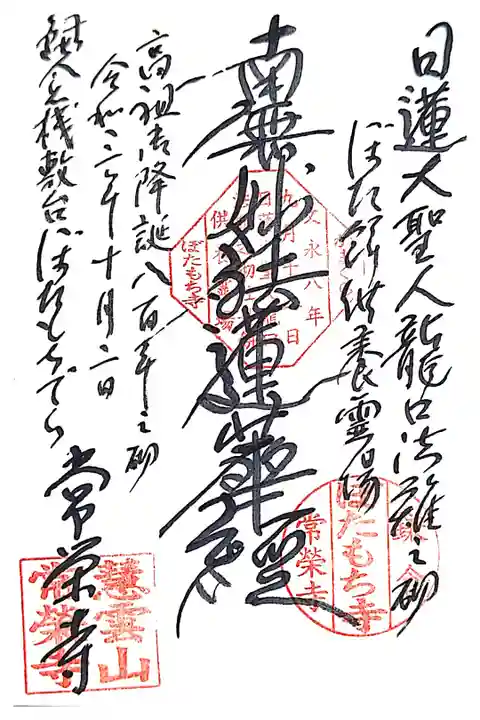 日蓮大聖人龍口法難之砌
ぼた餅供養霊場
南無妙法蓮華経
高祖大士降誕八百年之砌
令和三年十月二日
鎌倉桟敷台ぼたもちでら
常栄寺
文永八年
九月十二日
供
ぼたもち寺
ぼたもち寺
常榮寺
慧雲山
常榮寺